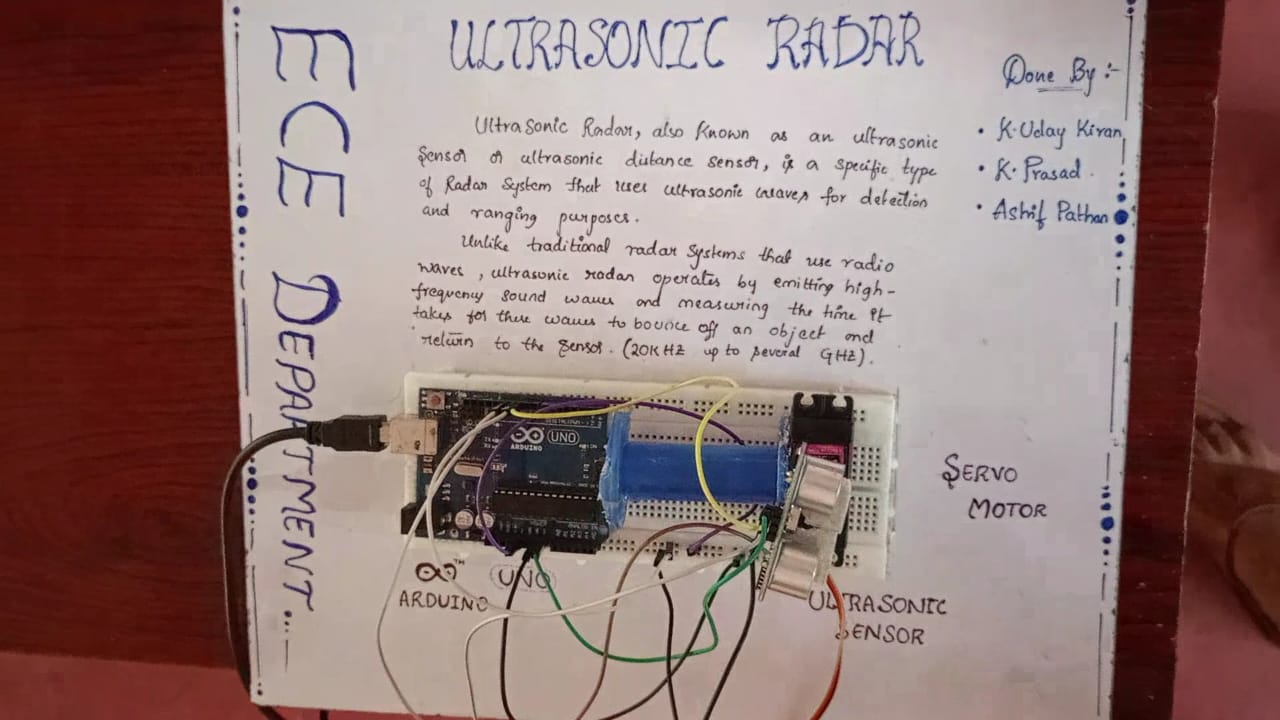 ECE DEPARTMENT...
ULTRASONIC RADAR
Done By :-
• K. Uday Kiran
• K. Prasad.
• Ashif Pathan
Ultrasonic Radar, also known as an ultrasonic
Sensor or ultrasonic distance sensor, is a specific type
of Radar System that uses ultrasonic waves for detection
and ranging purposes.
Unlike traditional radar systems that use radio
waves, ultrasonic radar operates by emitting high-
frequency sound waves and measuring the time it
takes for these waves to bounce off an object and
return to the sensor. (20KHZ up to several GHZ).
UNO
ARDUINO
SERVO
MOTOR
™ UNO
ARDUINO
ULTRASONIC
SENSOR